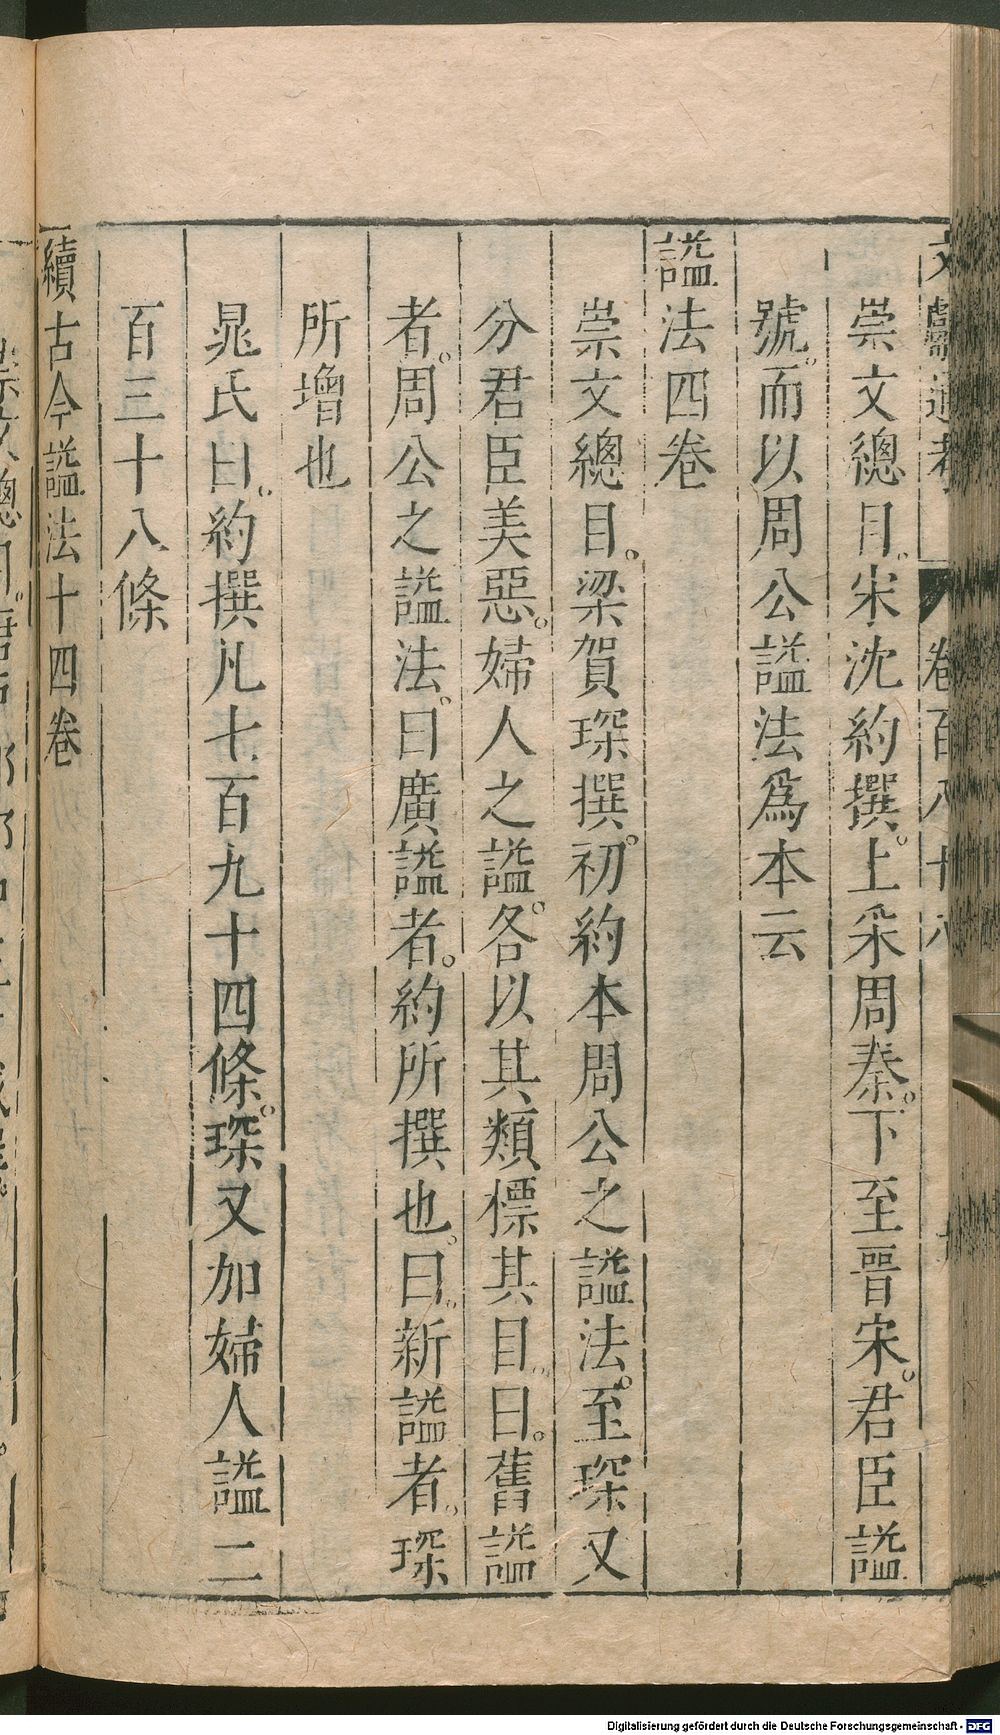 文獻通考　卷百八十八
崇文總目。宋沈約撰。上采周秦。下至晉宋。君臣謚
號。而以周公謚法爲本云
謚法四卷
崇文總目。梁賀琛撰。初約本周公之謚法。至琛又
分君臣美惡。婦人之謚。各以其類標其目。曰。舊謚
者。周公之謚法。曰廣謚者。約所撰也。曰。新謚者。琛
所增也
晁氏曰。約撰凡七百九十四條。琛又加婦人謚二
百三十八條
續古今謚法十四卷
Digitalisierung gefördert durch die Deutsche Forschungsgemeinschaft - DFG